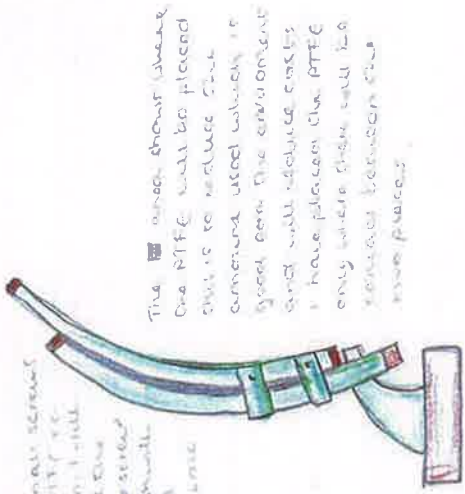 mall screws
PTFE to
I will
the
screw
The area shows where
the PTFE will be placed
this is to reduce the
amount used which is
good for the enviroment
and will reduce costs
I have placed the PTFE
only where there will be
contact between the
two places